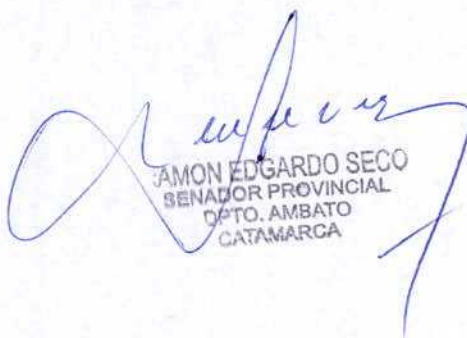 AMON EDGARDO SECO
SENADOR PROVINCIAL
DPTO. AMBATO
CATAMARCA